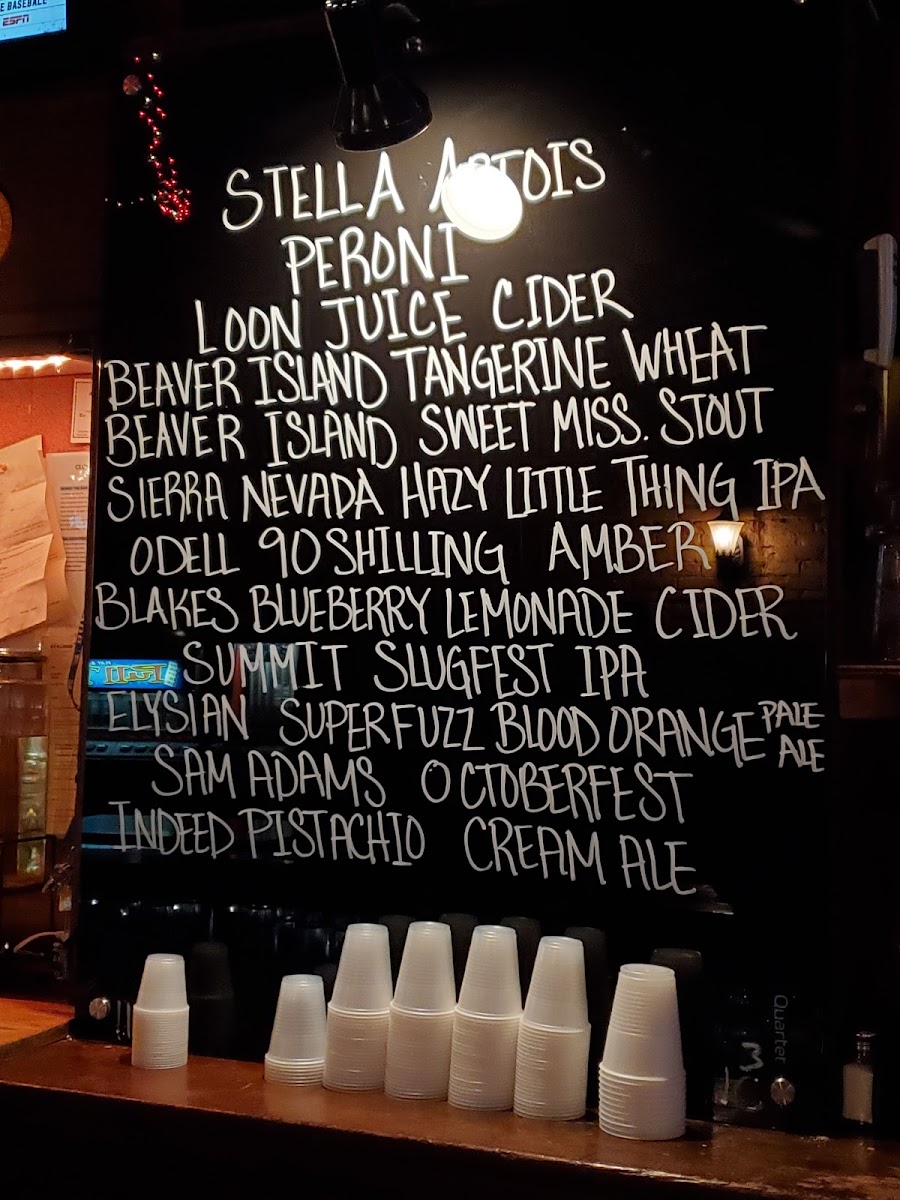 E BASEBALL
ESPN
STELLA ARTOIS
PERONI
LOON JUICE CIDER
BEAVER ISLAND TANGERINE WHEAT
BEAVER ISLAND SWEET MISS. STOUT
SIERRA NEVADA HAZY LITTLE THING IPA
ODELL 90 SHILLING AMBER
BLAKES BLUEBERRY LEMONADE CIDER
SUMMIT SLUGFEST IPA
ELYSIAN SUPERFUZZ BLOOD ORANGE PALE ALE
SAM ADAMS OCTOBERFEST
INDEED PISTACHIO CREAM ALE
Quarter